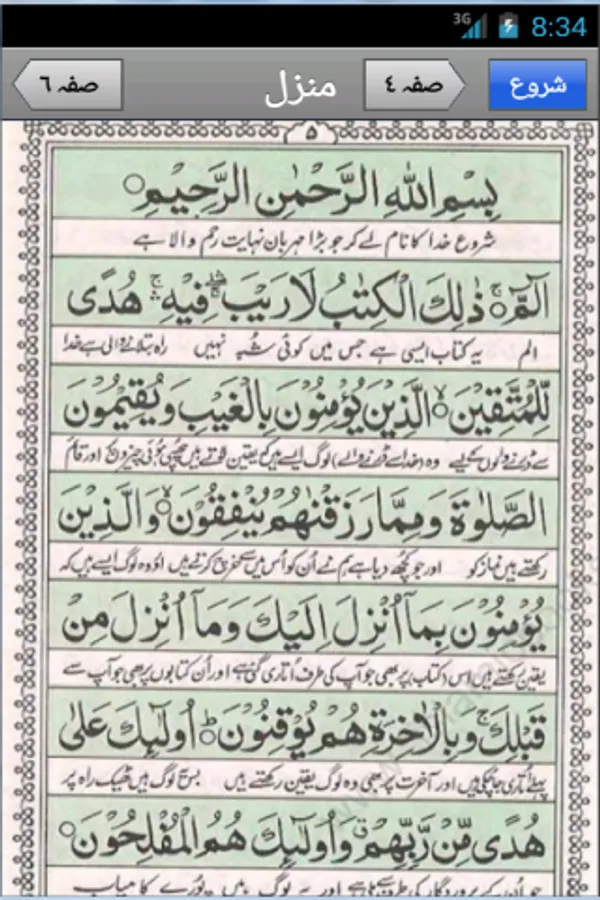 3G 8:34
شروع صفہ ٤ منزل صفہ ٦
۵
بِسْمِ اللّٰهِ الرَّحْمٰنِ الرَّحِيْمِ۝
شروع خدا کا نام لے کر جو بڑا مہربان نہایت رحم والا ہے
الٓمّٓ۝ۚ ذٰلِكَ الْكِتٰبُ لَا رَيْبَ ۛۖۚ فِيْهِ ۛۚ هُدًى
الم یہ کتاب ایسی ہے جس میں کوئی شُبہ نہیں راہ بتلانے والی ہے خدا
لِّلْمُتَّقِيْنَ۝ۙ الَّذِيْنَ يُؤْمِنُوْنَ بِالْغَيْبِ وَيُقِيْمُوْنَ
سے ڈرنے والوں کے لیے وہ (خدا سے ڈرنے والے) لوگ ایسے ہیں کہ یقین لاتے ہیں چھپی ہوئی چیزوں پر اور قائم
الصَّلٰوةَ وَمِمَّا رَزَقْنٰهُمْ يُنْفِقُوْنَ۝ۙ وَالَّذِيْنَ
رکھتے ہیں نماز کو اور جو کچھ دیا ہے ہم نے اُن کو اُس میں سے خرچ کرتے ہیں اور وہ لوگ ایسے ہیں کہ
يُؤْمِنُوْنَ بِمَآ اُنْزِلَ اِلَيْكَ وَمَآ اُنْزِلَ مِنْ
یقین رکھتے ہیں اس (کتاب) پر بھی جو آپ کی طرف اُتاری گئی ہے اور اُن کتابوں پر بھی جو آپ سے
قَبْلِكَ ۚ وَبِالْاٰخِرَةِ هُمْ يُوْقِنُوْنَ۝ؕ اُولٰٓئِكَ عَلٰى
پہلے اُتاری جا چکی ہیں اور آخرت پر بھی وہ لوگ یقین رکھتے ہیں بس یہ لوگ ہیں ٹھیک راہ پر
هُدًى مِّنْ رَّبِّهِمْ ۗ وَاُولٰٓئِكَ هُمُ الْمُفْلِحُوْنَ۝
جو اُن کے پروردگار کی طرف سے ملی ہے اور یہ لوگ ہیں پورے کامیاب